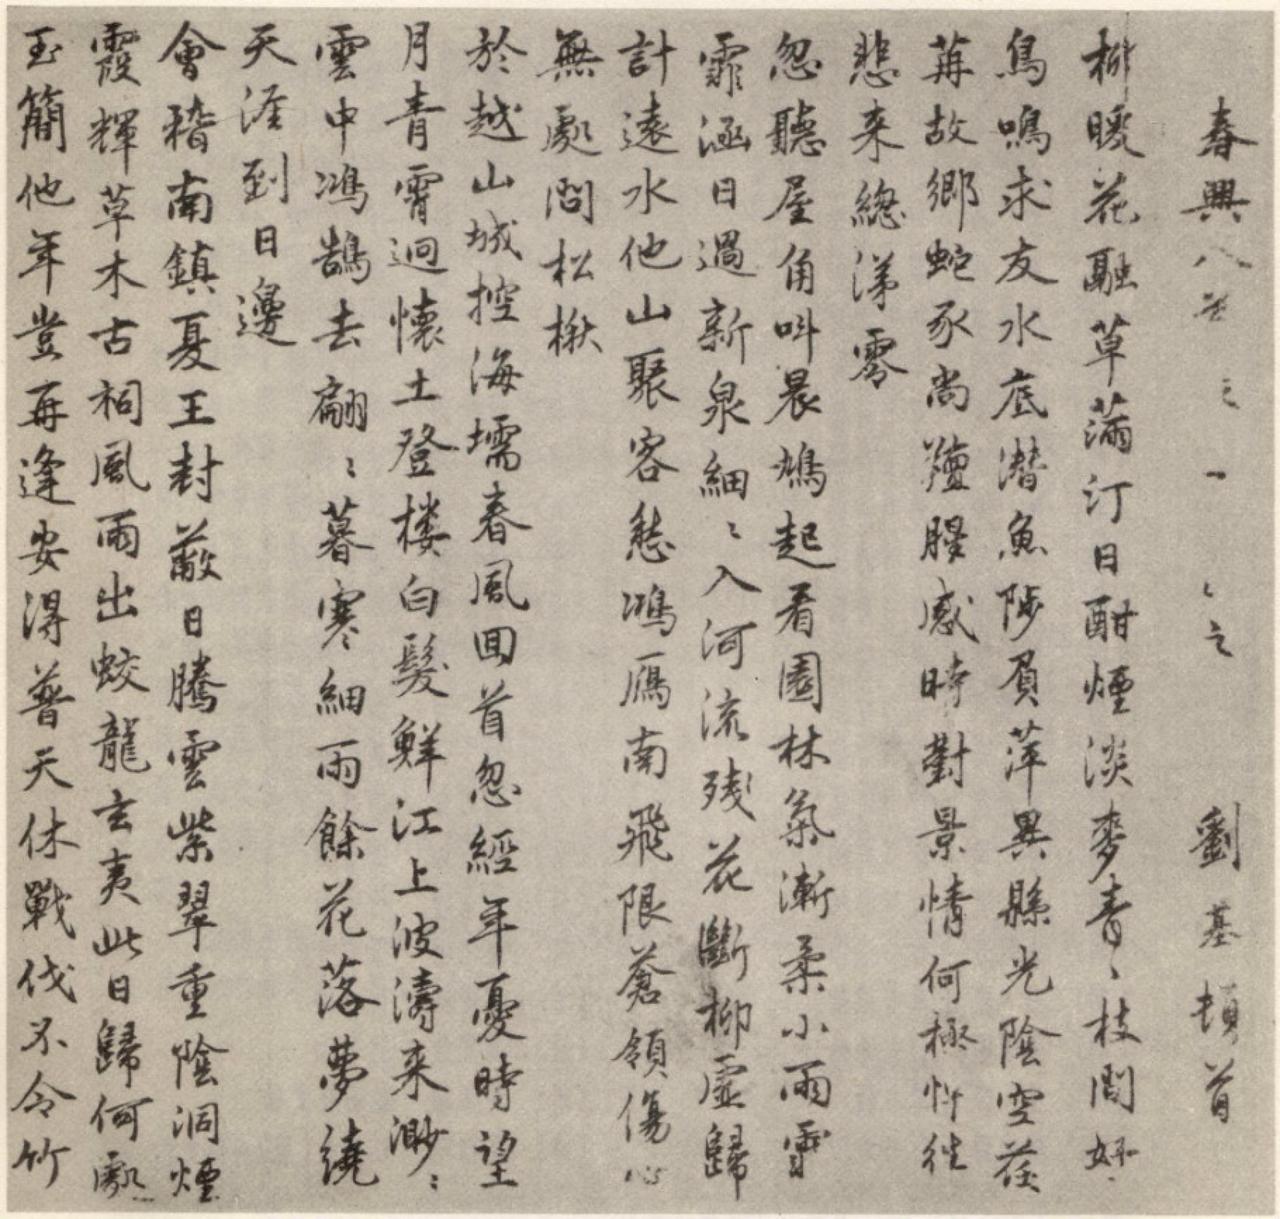 春興八首 之 一 之 劉基頓首
柳暖花融草滿汀日酣煙淡麥青〻枝間好
鳥鳴求友水底潛魚陟負萍異縣光陰空荏
苒故鄉蛇豕尚羶腥感時對景情何極忤往
悲来總涕零
忽聽屋角叫晨鳩起看園林氣漸柔小雨霏
霏涵日過新泉細〻入河流殘花斷柳虛歸
計遠水他山聚客愁鴻鴈南飛限蒼領傷心
無處問松楸
於越山城控海壖春風回首忽經年憂時望
月青霄迥懷土登樓白髮鮮江上波濤来渺〻
雲中鴻鵠去翩〻暮寒細雨餘花落夢繞
天涯到日邊
會稽南鎮夏王封蔽日騰雲紫翠重陰洞煙
霞輝草木古祠風雨出蛟龍玄夷此日歸何處
玉簡他年豈再逢安得普天休戰伐不令竹